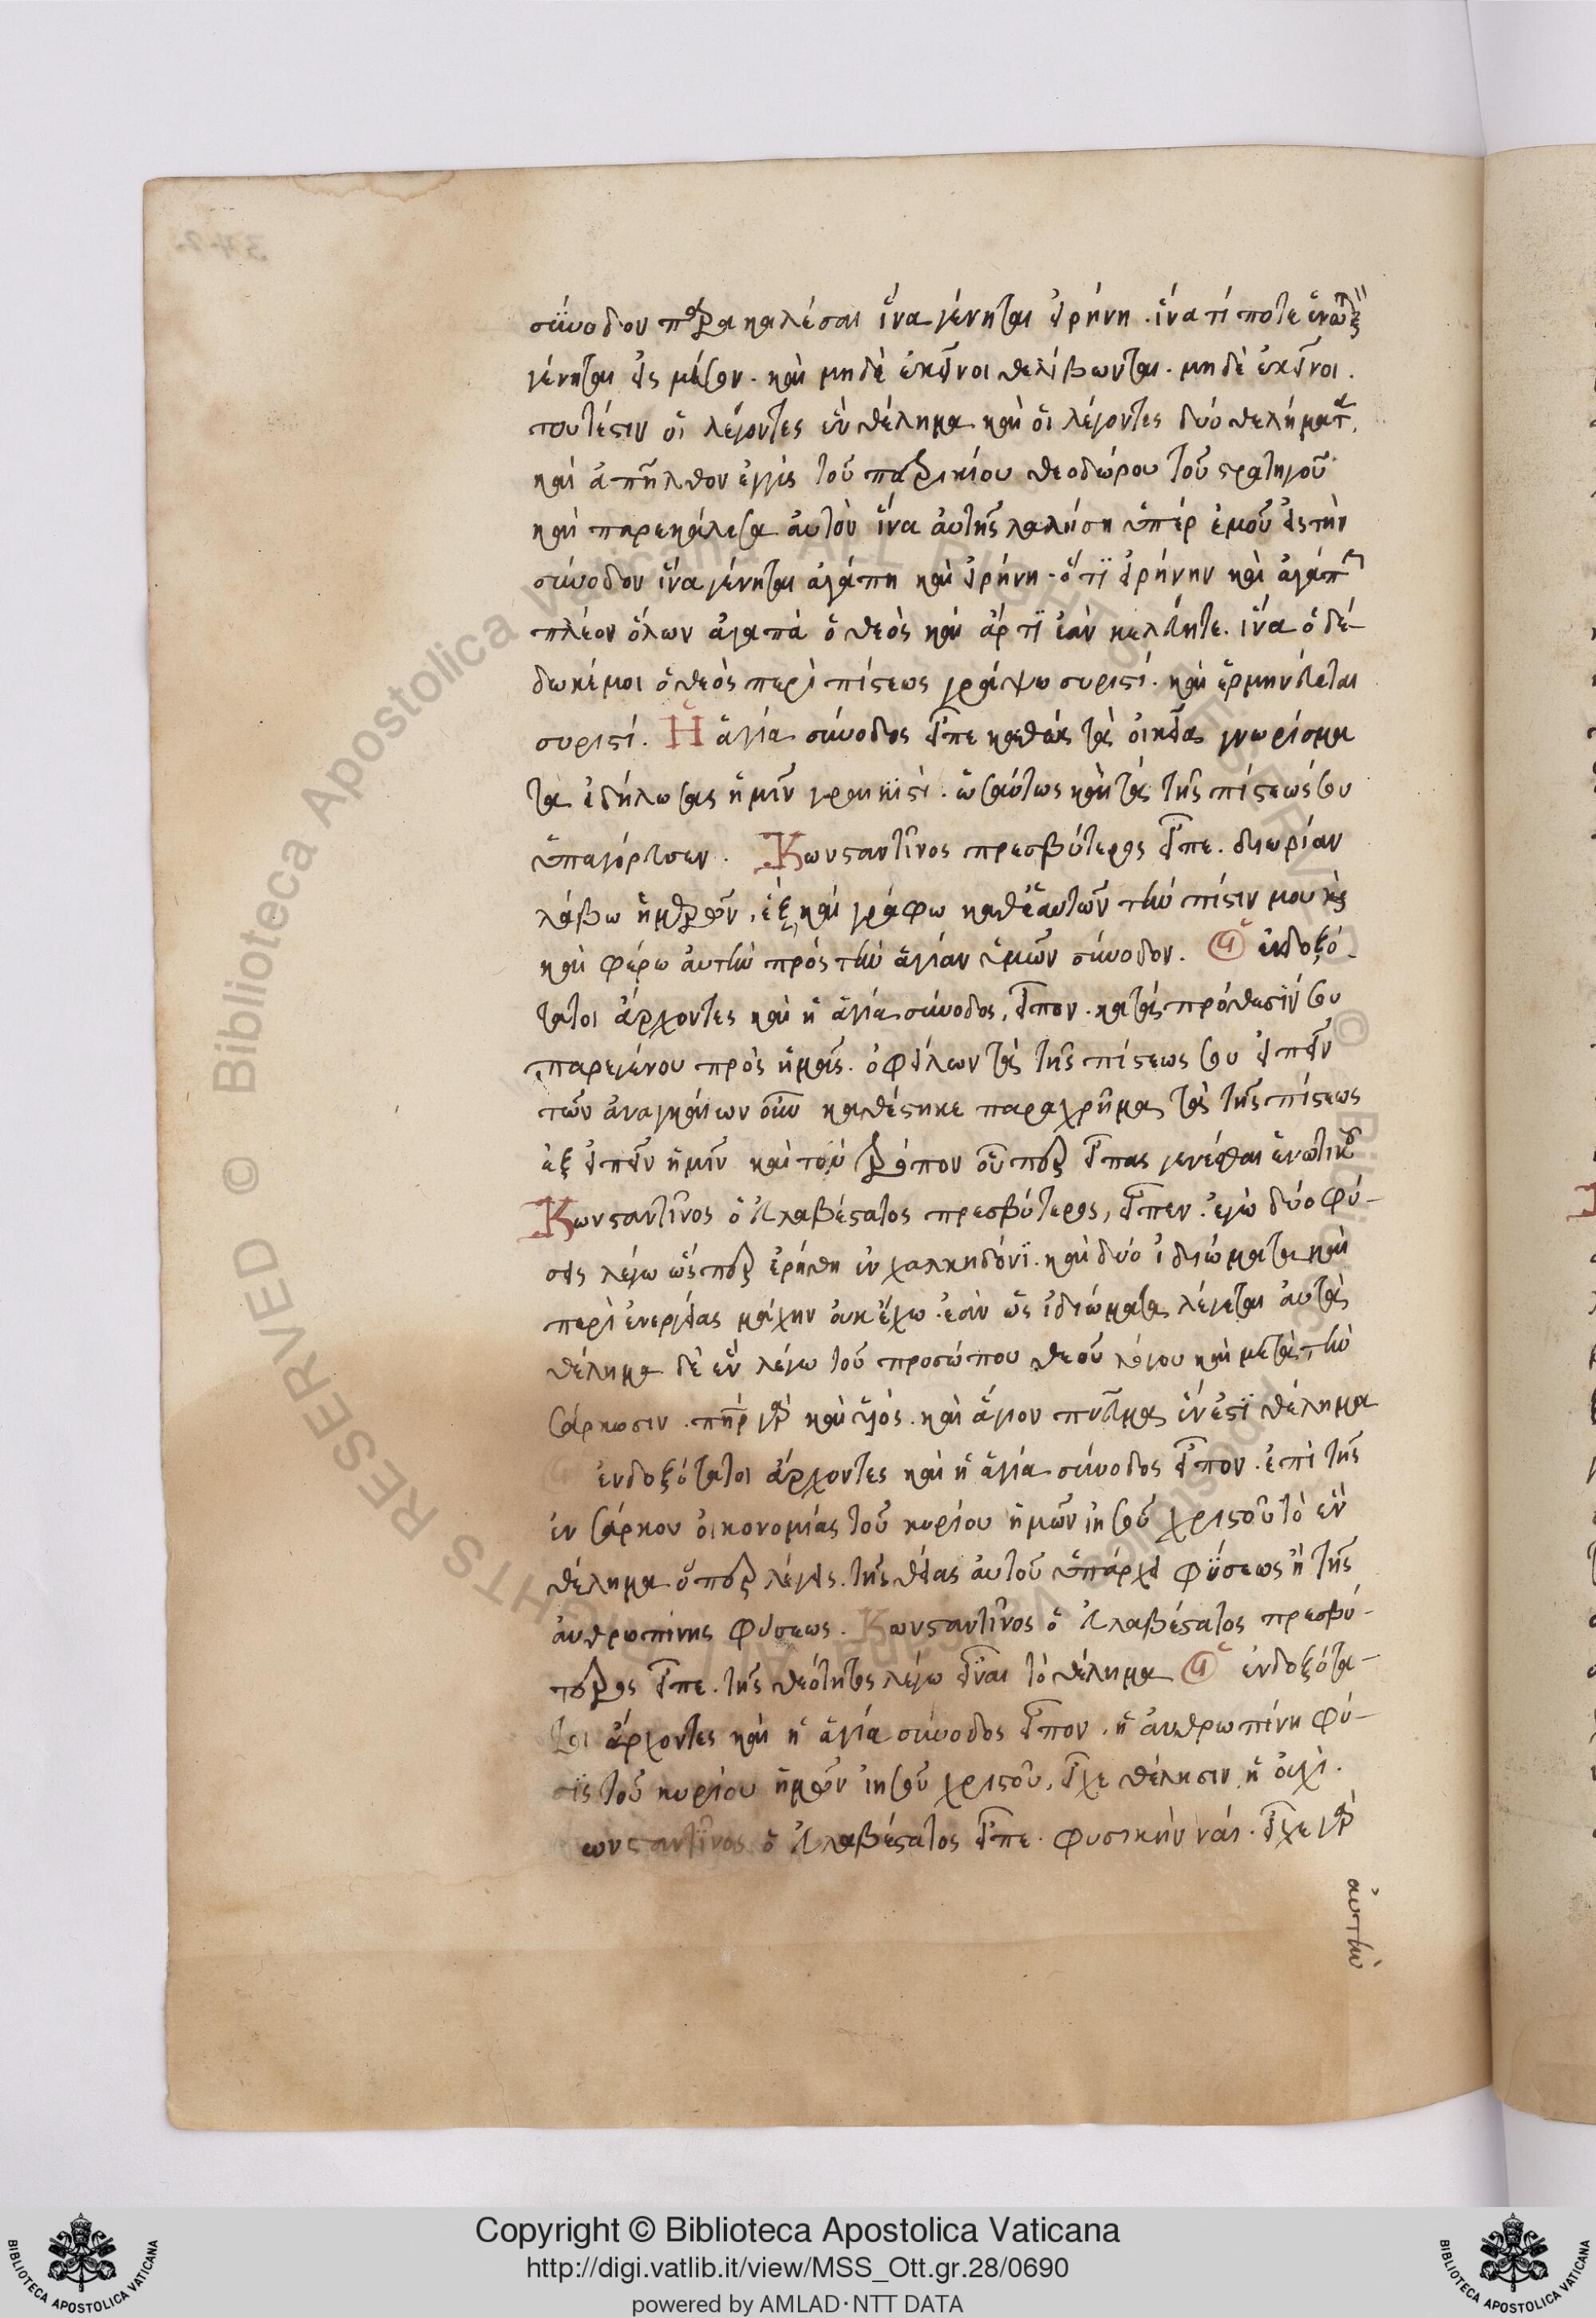 σύνοδον παρακαλέσαι ἵνα γένηται εἰρήνη. ἵνα τί ποτε ἑνωτικὸν
γένηται εἰς μέσον. καὶ μηδὲ ἐκεῖνοι θλίβωνται. μηδὲ ἐκεῖνοι.
τουτέστιν οἱ λέγοντες ἓν θέλημα καὶ οἱ λέγοντες δύο θελήματα.
καὶ ἀπῆλθον ἐγγὺς τοῦ πατρικίου θεοδώρου τοῦ στρατηγοῦ
καὶ παρεκάλεσα αὐτὸν ἵνα αὐτῆς λαλήση ὑπὲρ ἐμοῦ εἰς τὴν
σύνοδον ἵνα γένηται ἀγάπη καὶ εἰρήνη. ὅτι εἰρήνην καὶ ἀγάπην
πλέον ὅλων ἀγαπᾶ ὁ θεὸς καὶ ἄρτι ἐὰν κελεύητε. ἵνα ὃ δέ-
δωκέ μοι ὁ θεὸς περὶ πίστεως γράψω συριστί. καὶ ἑρμηνεύεται
συριστί. Ἡ ἁγία σύνοδος εἶπε καθὼς τὰ οἰκεῖα γνωρίσμα
τα ἐδήλωσας ἡμῖν γραικιστί. ὡσαύτως καὶ τὰ τῆς πίστεώς σου
ὑπαγόρευσεν. Κωνσταντῖνος πρεσβύτερος εἶπε. διωρίαν
λάβω ἡμερῶν, ἓξ, καὶ γράφω καθ' ἑαυτὸν τὴν πίστιν μου
καὶ φέρω αὐτὴν πρὸς τὴν ἁγίαν ὑμῶν σύνοδον. Οἱ ἐνδοξό-
τατοι ἄρχοντες καὶ ἡ ἁγία σύνοδος, εἶπον. κατὰ πρόθεσίν σου
παρεγένου πρὸς ἡμᾶς. ὀφείλων τὰ τῆς πίστεώς σου εἰπεῖν
τῶν ἀναγκαίων οὖν καθέστηκε παραχρῆμα τὰ τῆς πίστεως
ἐξειπεῖν ἡμῖν καὶ τὸν τρόπον οὗπερ εἶπας γενέσθαι ἑνωτικοῦ
Κωνσταντῖνος ὁ ἀλαβέσατος πρεσβύτερος, εἶπεν. ἐγὼ δύο φύ-
σεις λέγω ὥσπερ ἐρήθη ἐν χαλκηδόνι. καὶ δύο ἰδιώματα καὶ
περὶ ἐνεργείας μάχην οὐκ ἔχω. ἐὰν ὡς ἰδιώματα λέγεται αὐτὰ
θέλημα δὲ ἓν λέγω τοῦ προσώπου θεοῦ λόγου καὶ μετὰ τὴν
σάρκωσιν. πὴρ γὰρ καὶ υἱός. καὶ ἅγιον πνεῦμα ἕν ἐστι θέλημα
ἐνδοξότατοι ἄρχοντες καὶ ἡ ἁγία σύνοδος εἶπον. ἐπὶ τῆς
ἐν σάρκου οἰκονομίας τοῦ κυρίου ἡμῶν ἰησοῦ χριστοῦ τὸ ἓν
θέλημα ὅπερ λέγεις. τῆς θείας αὐτοῦ ὑπάρχει φύσεως ἢ τῆς
ἀνθρωπίνης φύσεως. Κωνσταντῖνος ὁ ἀλαβέσατος πρεσβύ-
τερος εἶπε. τῆς θεότητος λέγω εἶναι τὸ θέλημα Οἱ ἐνδοξότα-
τοι ἄρχοντες καὶ ἡ ἁγία σύνοδος εἶπον. ἡ ἀνθρωπίνη φύ-
σις τοῦ κυρίου ἡμῶν ἰησοῦ χριστοῦ, εἶχε θέλησιν, ἢ οὐχί.
ωνσταντῖνος ὁ ἀλαβέσατος εἶπε. φυσικὴν ναί. εἶχε γὰρ
αὐτὴν
Copyright © Biblioteca Apostolica Vaticana
http://digi.vatlib.it/view/MSS_Ott.gr.28/0690
powered by AMLAD·NTT DATA